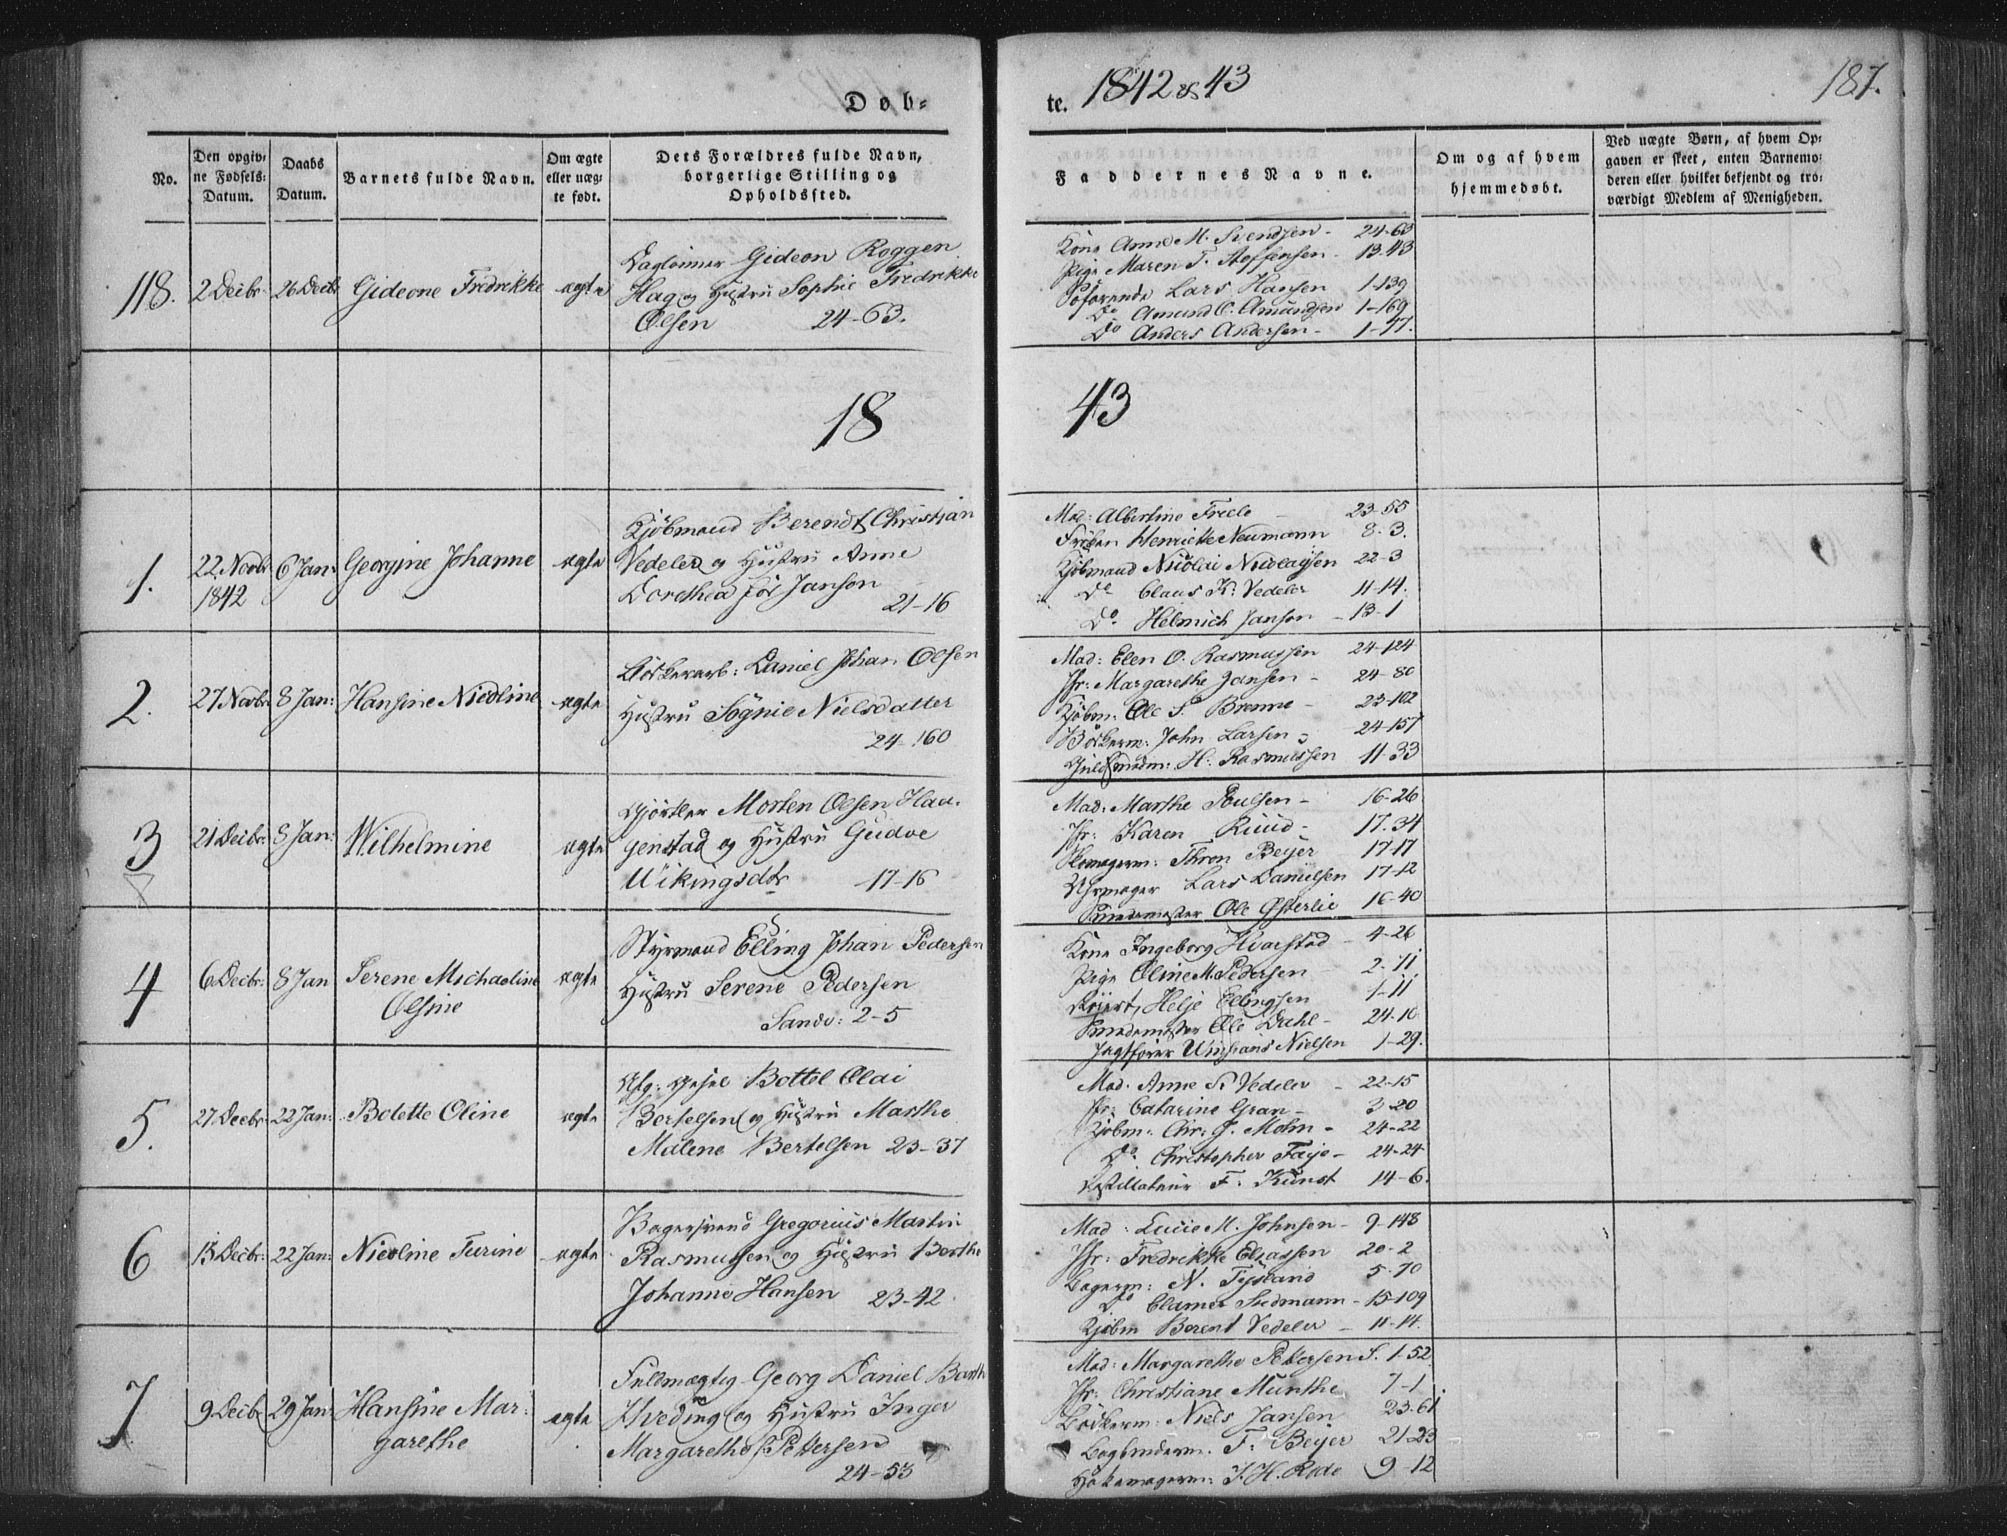 Døb-
te. 1842 & 43
187.
No.
Den opgiv-
ne Fødsels-
Datum.
Daabs
Datum.
Barnets fulde Navn.
Om ægte
eller uæg-
te født.
Dets Forældres fulde Navn,
borgerlige Stilling og
Opholdssted.
Faddernes Navne.
Om og af hvem
hjemmedøbt.
Ved uægte Børn, af hvem Op-
gaven er skeet, enten Barnemo-
deren eller hvilket bekjendt og tro-
værdigt Medlem af Menigheden.
118. 2 Decbr. 26 Decbr. Gideone Fredrikke ægte
Dagleiner Gideon Roggen
Hag og Hustru Sophie Fredrikke
Olsen 24-63.
Kone Anne M. Svendsen - 24-63
Pige Maren T. Steffensen - 13-43
Søfarende Lars Hansen 1-139
Do Amund O. Amundsen 1-169
Do Anders Andersen - 1-47.
18 43
1. 22 Novbr 1842 6 Jan: Georgine Johanne ægte
Kjöbmand Berendt Christian
Vedeler og Hustru Anne
Dorothea för Janson
21-16
Mad: Albertine Friele - 23-55
Fröken Henriette Neumann 8-3.
Kjöbmand Nicolai Nicolaysen 22-3
Do Claus K. Vedeler 11-14.
Do Helmich Janson - 13-1
2. 27 Novbr 8 Jan: Hansine Nicoline ægte
Daniel Johan Olsen
Hustru Sögnie Nielsdatter
24-160
Mad: Elen O. Rasmussen 24-124
Jfr: Margarethe Jansen - 24-80
Kjöbm: Ole S. Brenne - 23-102
John Larsen 24-157
Guldsmedm: H. Rasmussen 11-33
3 21 Decbr. 8 Jan: Wilhelmine ægte
Gjörtler Morten Olsen Hau-
genstad og Hustru Gudve
Wikingsdtr 17-16
Mad: Marthe Poulsen - 16-26
Jfr: Karen Ruud - 17-34
Skomagerm: Thron Beyer 17-17
Uhrmager Lars Danielsen 17-12
Smedemester Ole Østerlie 16-40
4 6 Decbr: 8 Jan Serene Michaeline
Olsine
ægte
Styrmand Elling Johan Pedersen
Hustru Serene Pedersen
Sandv: 2-5
Kone Ingeborg Hvarstad - 4-26
Pige Oline M. Pedersen - 2-11
Helje Ellingsen 1-11
Smedemester Ole Dahl - 24-10
Jagtförer Nielsen 1-29.
5. 27 Decbr 22 Jan: Bolette Oline ægte
Bottel Olai
Bertelsen og Hustru Marthe
Malene Bertelsen 23-37
Mad. Anne S. Vedeler - 22-15
Jfr: Catarine Gran - 3-20
Kjöbm: Chr: J. Mohn - 24-22
Do Christopher Faye - 24-24
Destillateur F. Kunst 14-6.
6 13 Decbr: 22 Jan: Nicoline Turine ægte
Bagersvend Gregorius Martin
Rasmussen og Hustru Berthe
Johanne Hansen 23-42.
Mad: Lucie M. Johnsen - 9-148
Jfr: Fredrikke Eliassen 20-2
Bagerm: N. 5-70
Do Clamer Sudmann - 15-109
Kjöbm Berent Vedeler - 11-14.
7 9 Decbr 29 Jan: Hansine Mar-
garethe
ægte
Fuldmægtig Georg Daniel Barth
Hveding og Hustru Inger
Margarethe f. Pettersen
24-53
Mad: Margarethe Pettersen S. 1-52
Jfr: Christiane Munthe 7-1
Bödkerm: Niels Jansen 23-61
Bogbinderm. F. Beyer 21-23
J. H. Rode 9-12